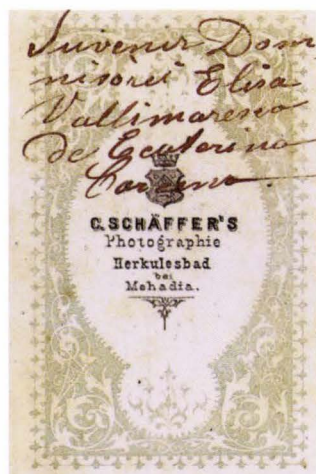 Suvenir Dom
nisórei Elisa
Vallimarescu
de Ecaterina
C.SCHÄFFER'S
Photographie
Herkulesbad
bei
Mehadia.